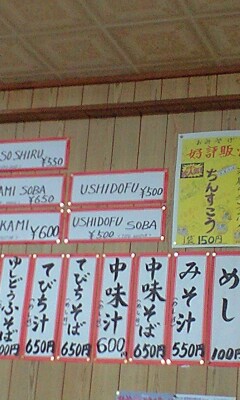 SOSHIRU
¥550
AMI SOBA
¥650
KAMI ¥600
USHIDOFU ¥500
USHIDOFU SOBA
¥500
好評販
ちんすこう
1袋 150円
めし
100円
みそ汁
550円
中味そば
650円
中味汁
600
てびちそば
650円
てびち汁
650円
ゆどふそば
00円